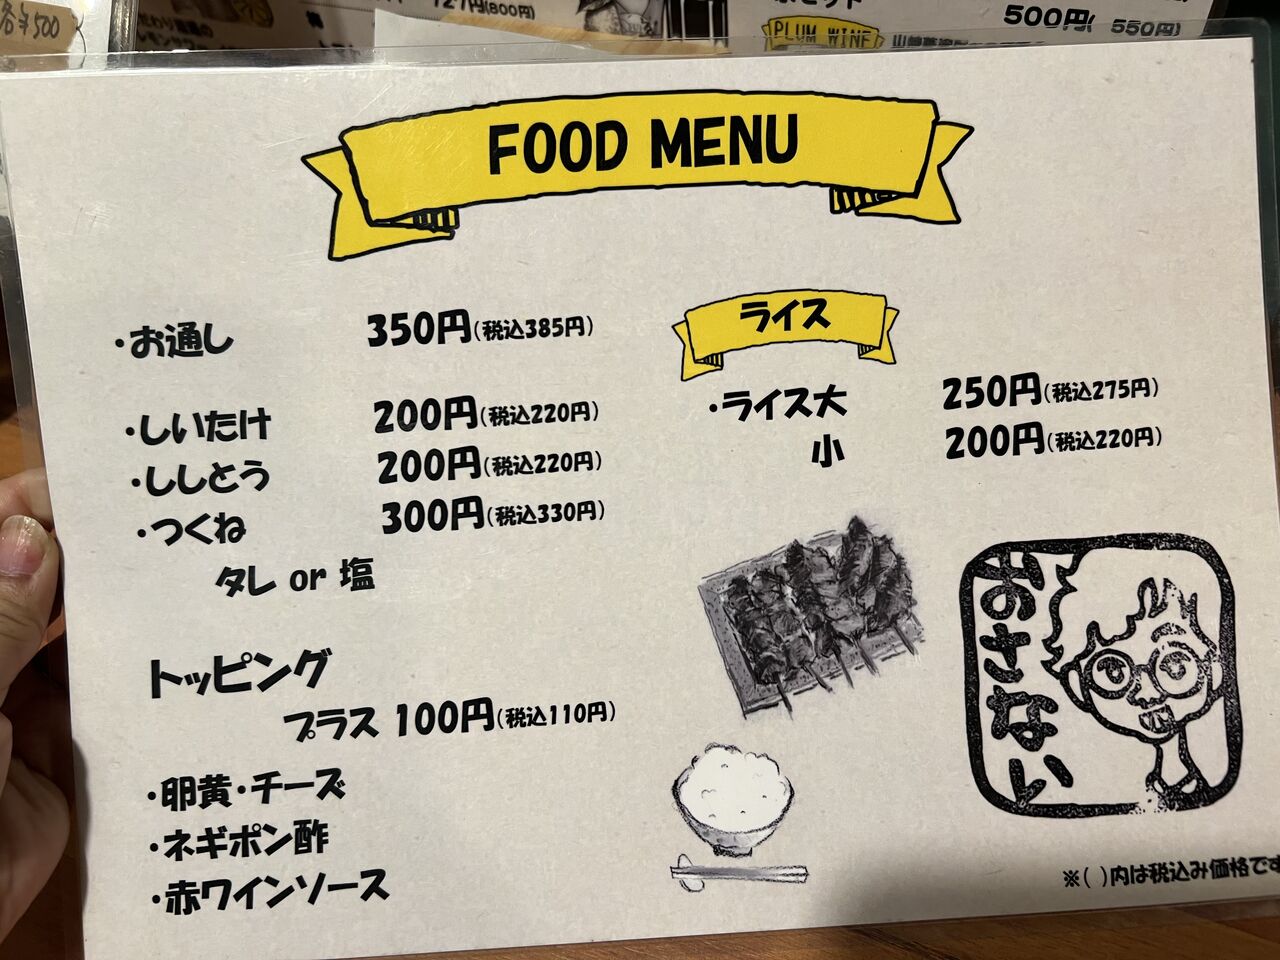 各¥500
727円(800円)
500円( 550円)
PLUM WINE
FOOD MENU
・お通し 350円(税込385円)
・しいたけ 200円(税込220円)
・ししとう 200円(税込220円)
・つくね 300円(税込330円)
タレ or 塩
トッピング
プラス 100円(税込110円)
・卵黄・チーズ
・ネギポン酢
・赤ワインソース
ライス
・ライス大 250円(税込275円)
小 200円(税込220円)
おさない
※( )内は税込み価格です